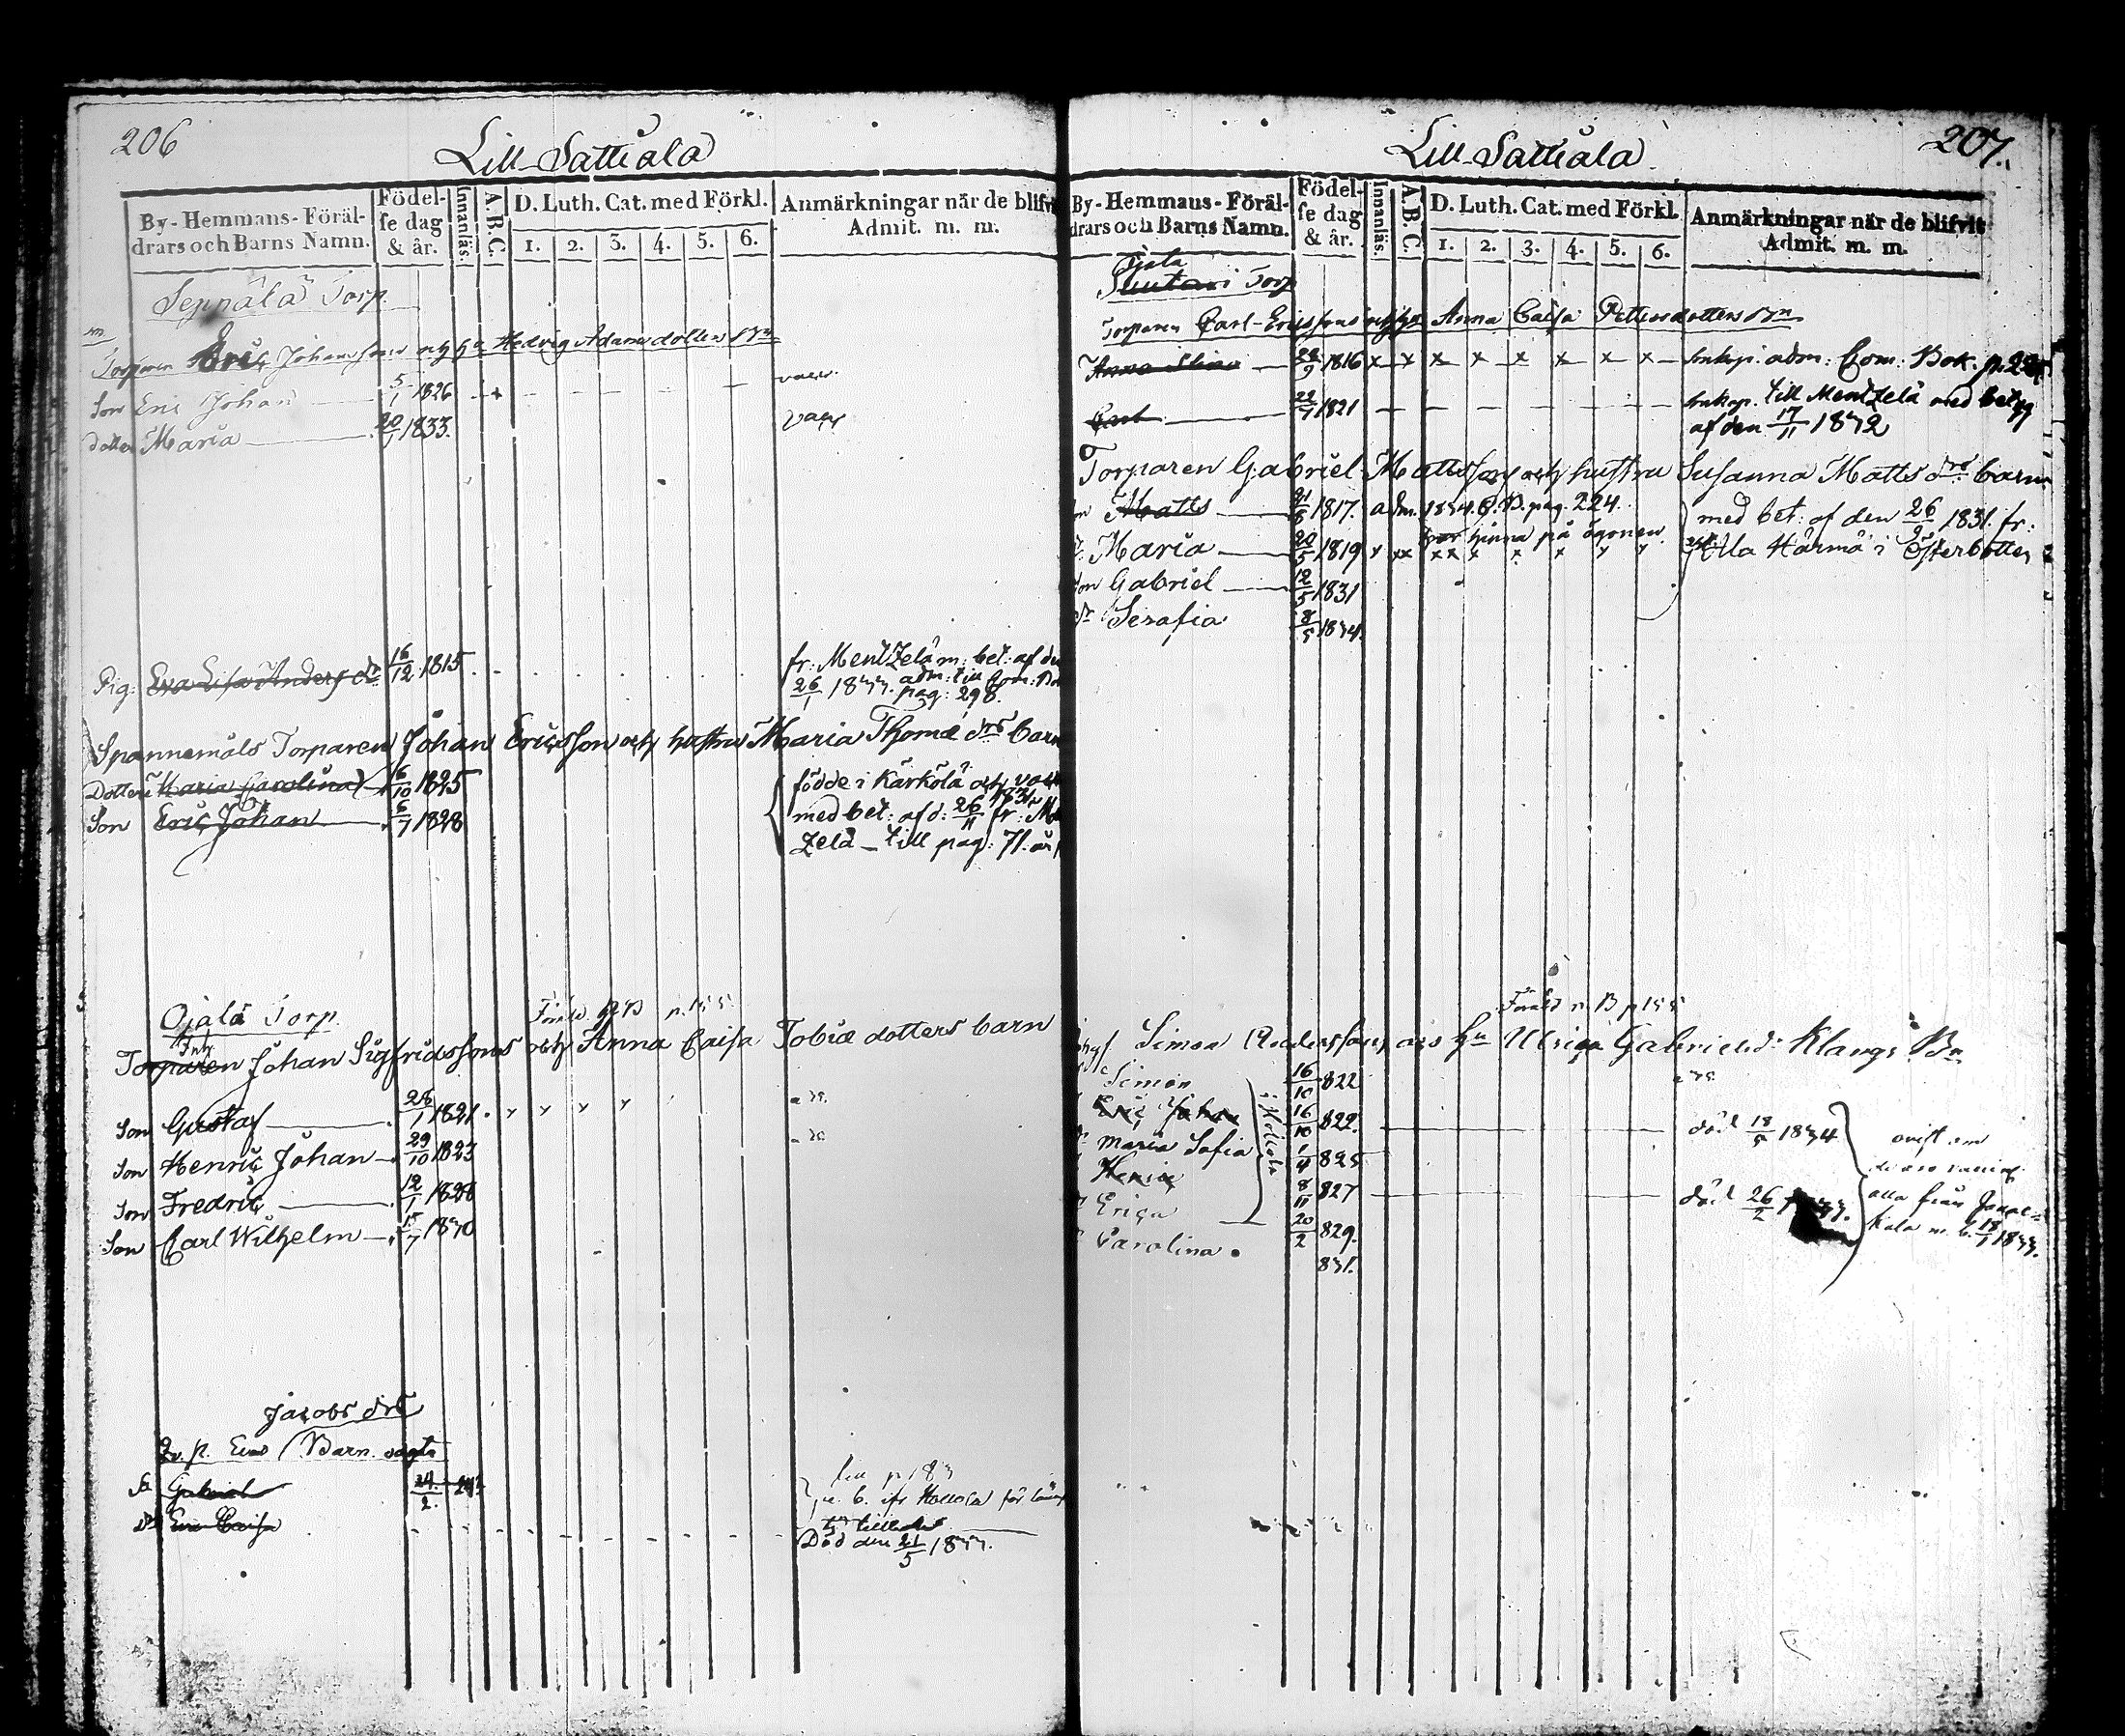 206
Lill Sattiala
By-Hemmans-Föräl-
drars och Barns Namn.
Födel-
se dag
& år.
Innanläs.
A.B.C.
D. Luth. Cat. med Förkl.
1. 2. 3. 4. 5. 6.
Anmärkningar när de blifvi
Admit. m. m.
Seppälä Torp.
Torparen Eric Johanssons och ha Hedvig Adamsdotters Bn
Son Eric Johan 5/1 1826 vacc.
Dotter Maria 20/1 1833. vacc
Pig: Eva Lisa Anders dr 16/12 1815 fr: Mentzelä m: bet: af den
26/1 1833. adm: till Com: Bok
pag: 298.
Spannemåls Torparen Johan Ericsson och hustru Maria Thomæ drs barn
Dotter Maria Carolina 6/10 1825 födde i Kärkölä och vacc
Son Eric Johan 6/7 1828 med bet: af d: 26/11 1831 fr: Ment
zelä till pag: 71.
Ojala Torp.
p. 155
Inh.
Torparen Johan Sigfridssons och Anna Caisa Tobiæ dotters barn
Son Gustaf 28/1 1821
Son Henric Johan 29/10 1823
Son Fredric 12/1 1828
Son Carl Wilhelm 15/7 1830
Jacobs drs
Eva Barn
Sn Gabriel 24/2
Dr Eva Caisa
Död den 21/5 1833.
207.
Lill Sattiala
By-Hemmans-Föräl-
drars och Barns Namn.
Födel-
se dag
& år.
Innanläs.
A.B.C.
D. Luth. Cat. med Förkl.
1. 2. 3. 4. 5. 6.
Anmärkningar när de blifvit
Admit. m. m.
Suutari Torp
Torparen Carl Ericssons och ha Anna Caisa Pettersdotters Bn
Anna Stina 1816 x x x x x x x x adm: Com: Bok. p.
Carl 22/1 1821 till Mentzelä med betyg
af den 17/11 1832
Torparen Gabriel Mattsson och hustru Susanna Matts drs barn
Matts 21/8 1817. adm. 1834. C. B. pag. 224. med bet: af den 26/9 1831. fr:
har hinna på ögonen.
Maria 20/5 1819 Härmä i Österbotten
Son Gabriel 12/5 1831
dr Serafia 8/5 1834.
p 155
Simon hu Ulrica Gabrielsdr Klangs Bn
Simon 16/10 822
Eric Johan 16/10 822. död 18/5 1834
Maria Sofia 1/4 825
Henric 8/11 827 död 26/2 1833.
Erica 20/2 829.
Carolina 831.
i Hollola
alla från Janak-
kala m. b. 18/1 1833.